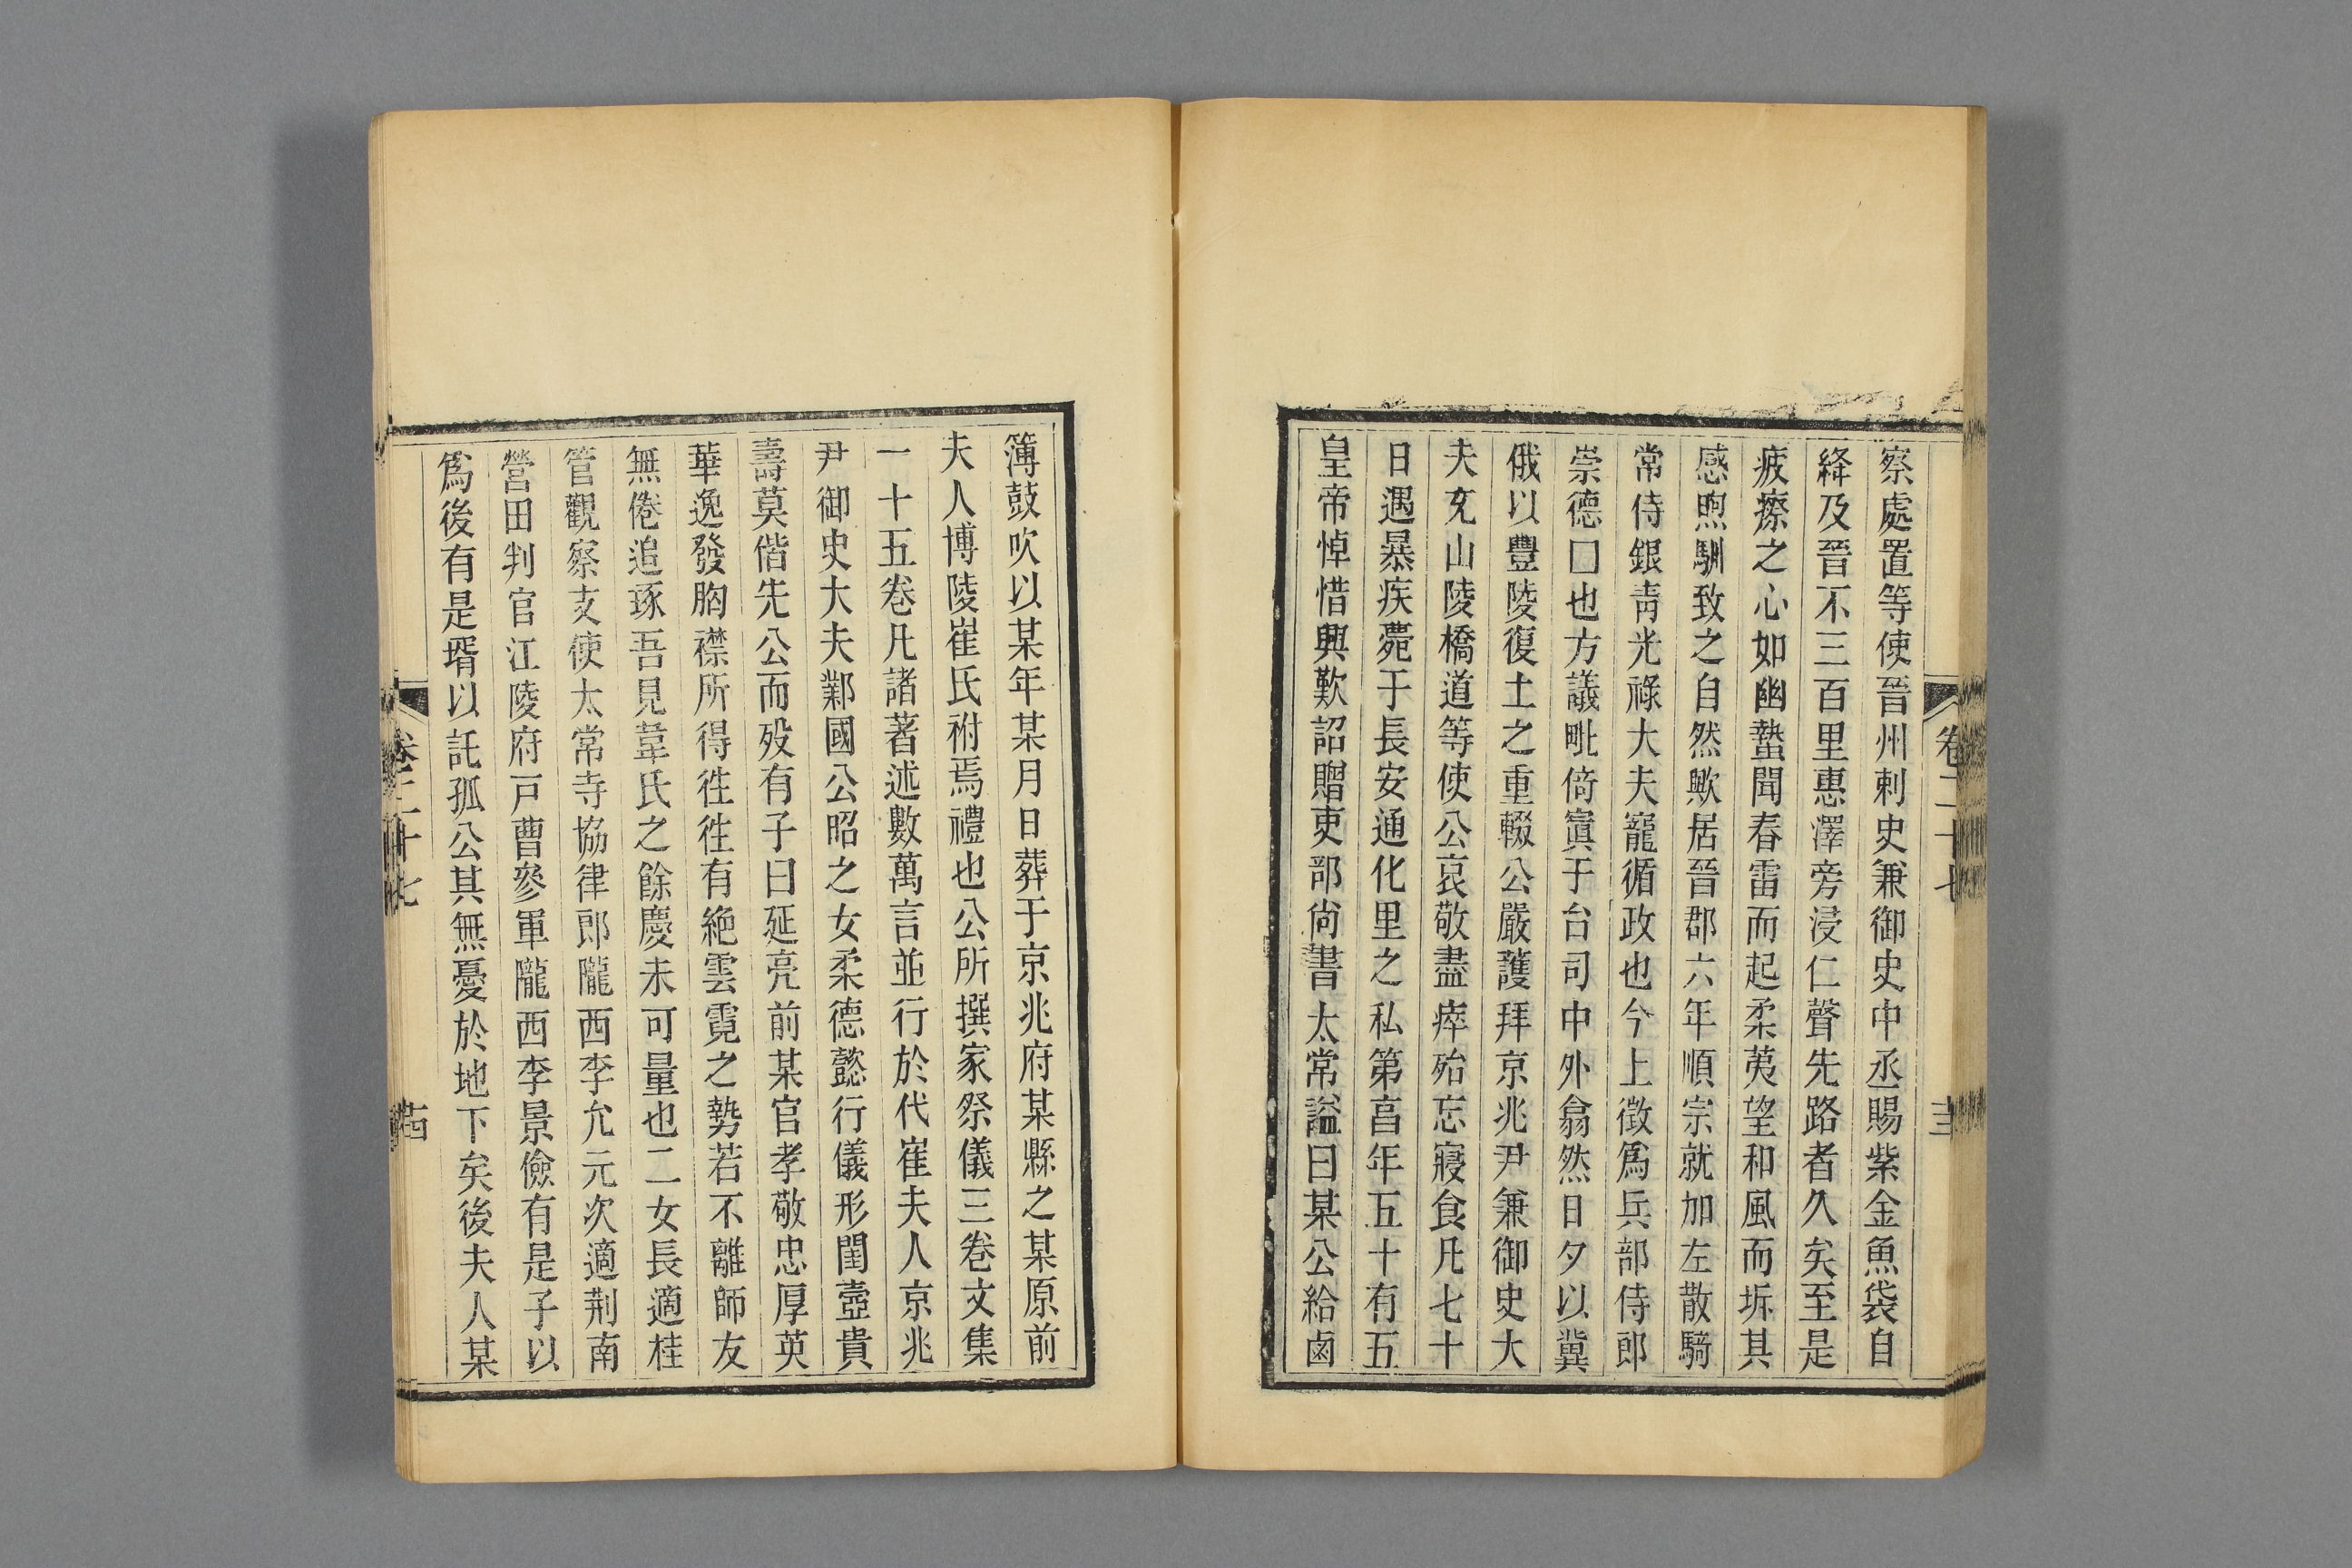 察處置等使晉州刺史兼御史中丞賜紫金魚袋自
絳及晉不三百里惠澤旁浸仁聲先路者久矣至是
疲瘵之心如幽蟄聞春雷而起柔荑望和風而坼其
感煦馴致之自然歟居晉郡六年順宗就加左散騎
常侍銀青光祿大夫寵循政也今上徵爲兵部侍郎
崇德囗也方議毗倚寘于台司中外翕然日夕以冀
俄以豐陵復土之重輟公嚴護拜京兆尹兼御史大
夫充山陵橋道等使公哀敬盡瘁殆忘寢食凡七十
日遇暴疾薨于長安通化里之私第亯年五十有五
皇帝悼惜興歎詔贈吏部尚書太常謚曰某公給鹵
卷二十七
十三
簿鼓吹以某年某月日葬于京兆府某縣之某原前
夫人博陵崔氏祔焉禮也公所撰家祭儀三卷文集
一十五卷凡諸著述數萬言並行於代崔夫人京兆
尹御史大夫鄴國公昭之女柔德懿行儀形閨壼貴
壽莫偕先公而歿有子曰延亮前某官孝敬忠厚英
華逸發胸襟所得徃徃有絶雲霓之勢若不離師友
無倦追琢吾見韋氏之餘慶未可量也二女長適桂
管觀察支使太常寺協律郎隴西李允元次適荆南
營田判官江陵府戸曹參軍隴西李景儉有是子以
爲後有是壻以託孤公其無憂於地下矣後夫人某
卷二十七
十四